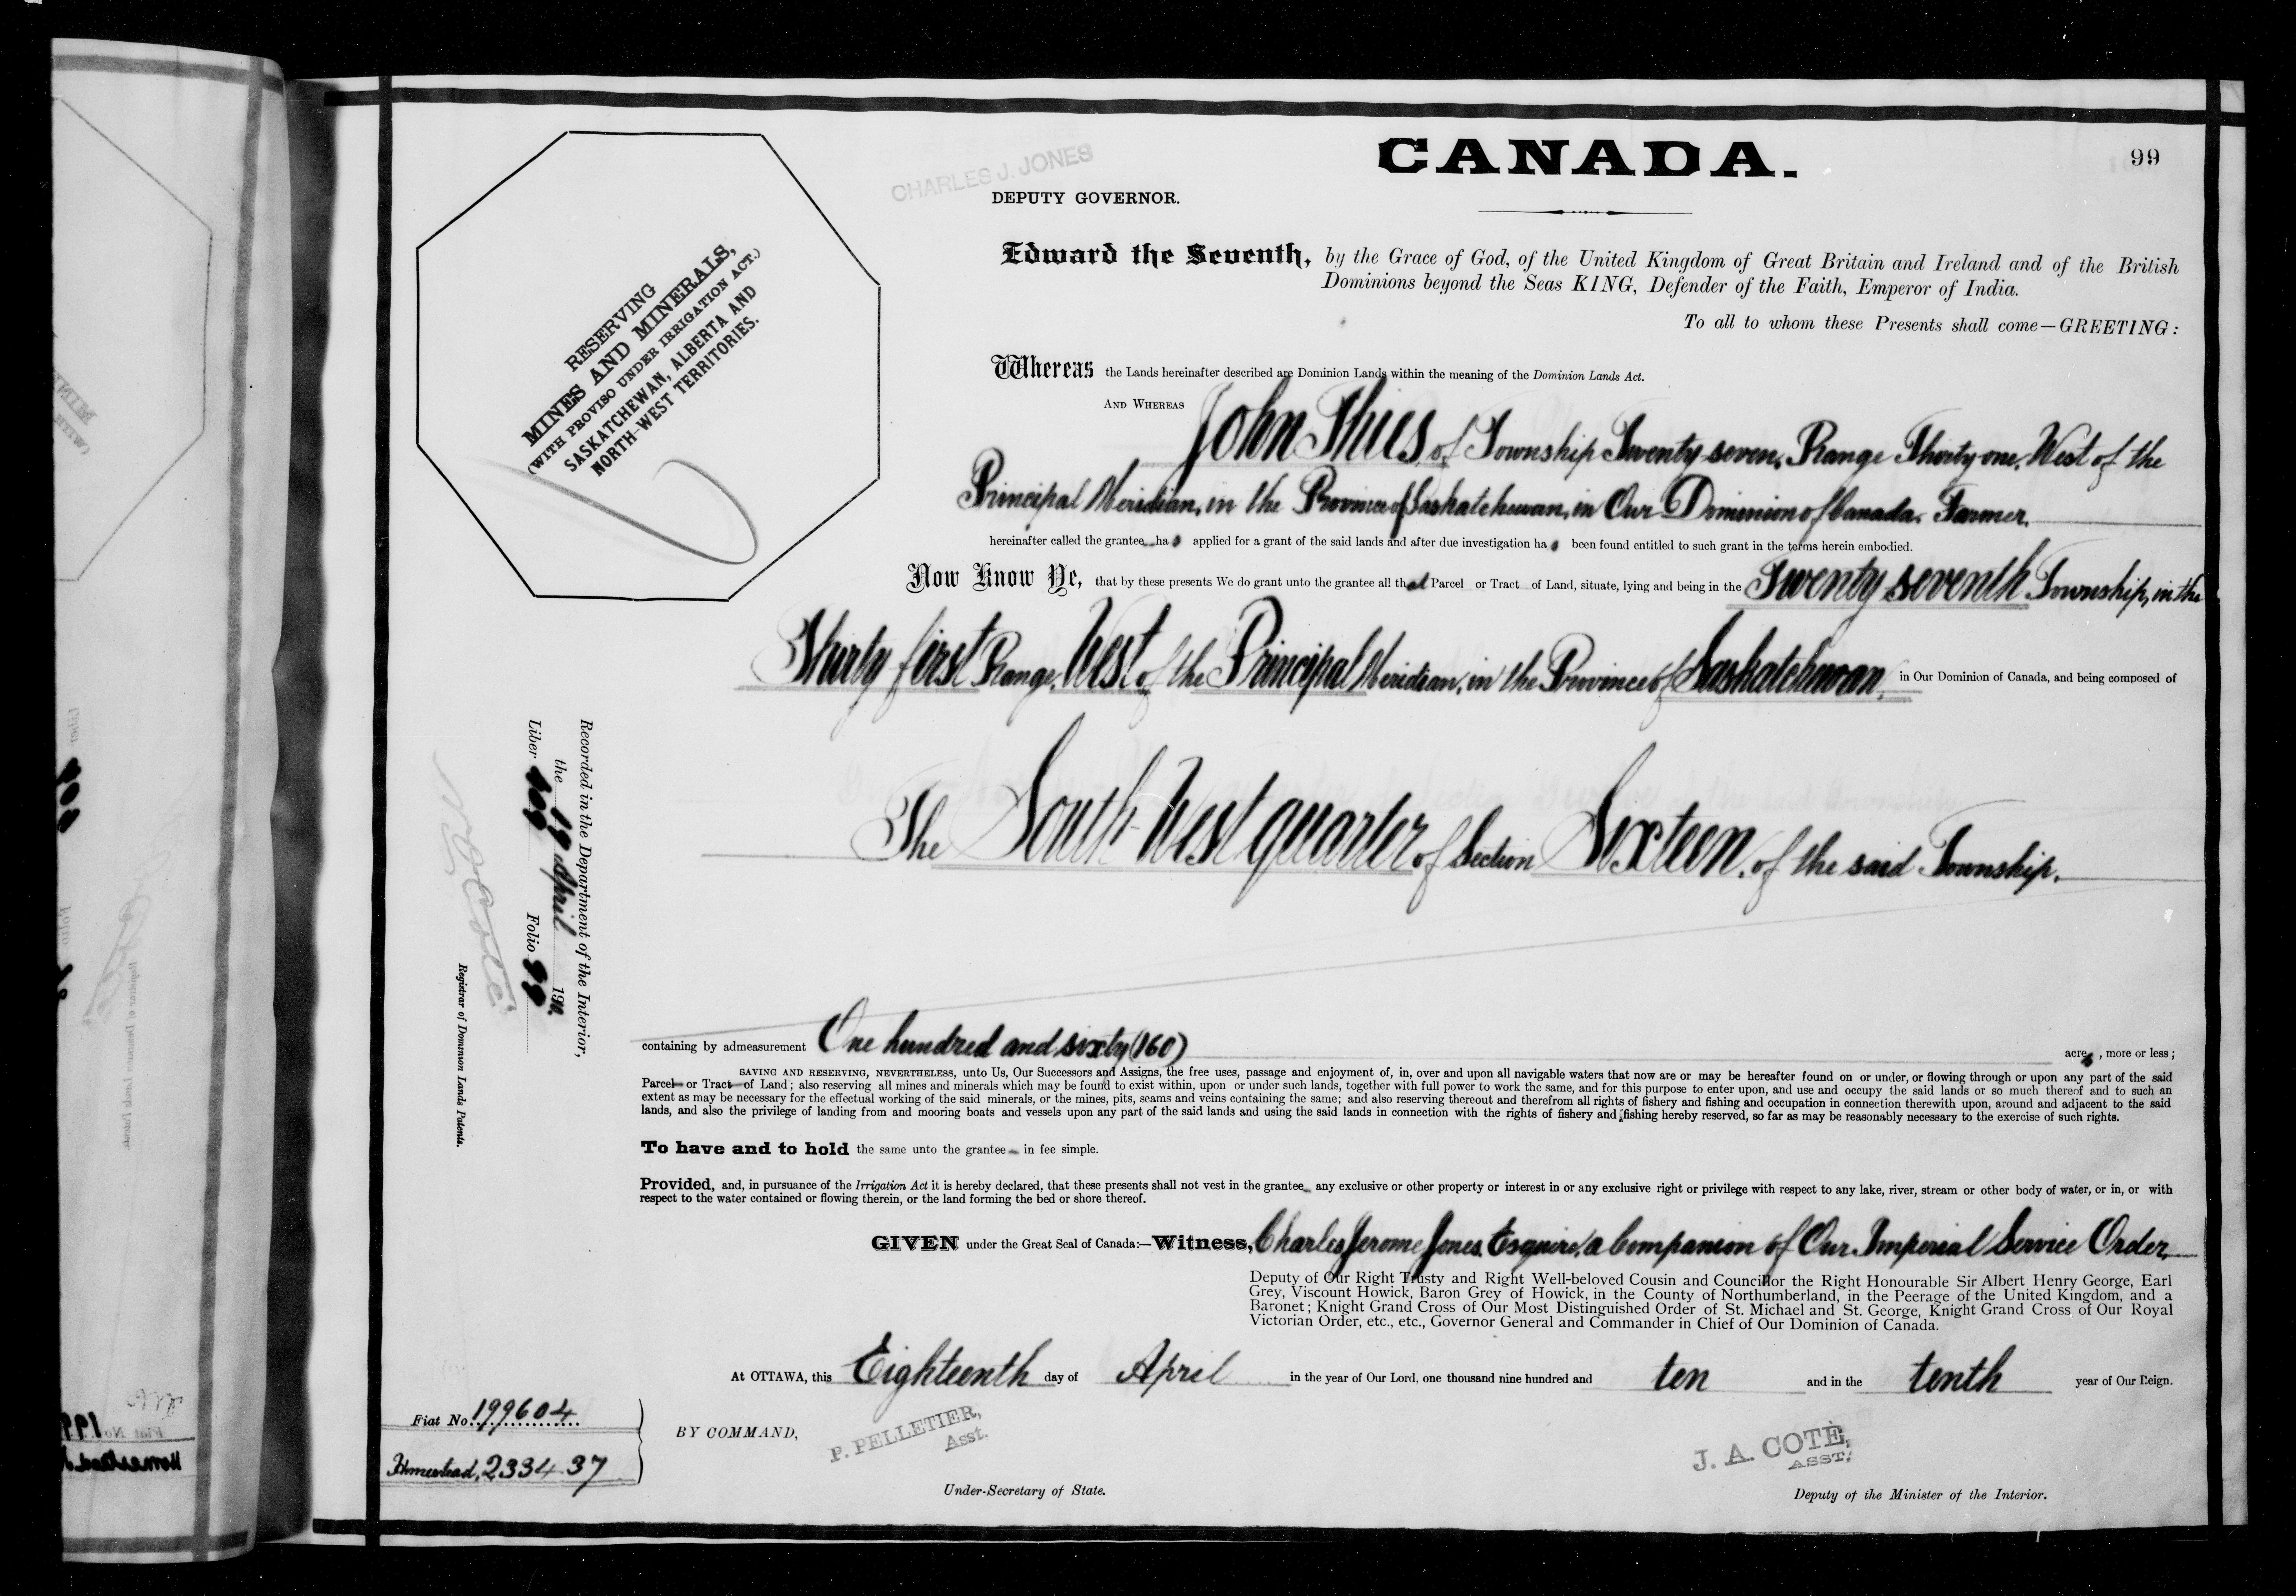 CANADA.
99
CHARLES J. JONES
DEPUTY GOVERNOR.
RESERVING
MINES AND MINERALS,
(WITH PROVISO UNDER IRRIGATION ACT.)
SASKATCHEWAN, ALBERTA AND
NORTH-WEST TERRITORIES.
Edward the Seventh, by the Grace of God, of the United Kingdom of Great Britain and Ireland and of the British
Dominions beyond the Seas KING, Defender of the Faith, Emperor of India.
To all to whom these Presents shall come—GREETING:
Whereas the Lands hereinafter described are Dominion Lands within the meaning of the Dominion Lands Act.
AND WHEREAS John Thies of Township Twenty seven, Range Thirty one, West of the
Principal Meridian, in the Province of Saskatchewan, in Our Dominion of Canada, Farmer,
hereinafter called the grantee ha s applied for a grant of the said lands and after due investigation ha s been found entitled to such grant in the terms herein embodied.
Now Know Ye, that by these presents We do grant unto the grantee all that Parcel or Tract of Land, situate, lying and being in the Twenty seventh Township, in the
Thirty first Range, West of the Principal Meridian, in the Province of Saskatchewan, in Our Dominion of Canada, and being composed of
The South West quarter of Section Sixteen, of the said Township.
containing by admeasurement One hundred and sixty (160) acres, more or less;
SAVING AND RESERVING, NEVERTHELESS, unto Us, Our Successors and Assigns, the free uses, passage and enjoyment of, in, over and upon all navigable waters that now are or may be hereafter found on or under, or flowing through or upon any part of the said
Parcel or Tract of Land; also reserving all mines and minerals which may be found to exist within, upon or under such lands, together with full power to work the same, and for this purpose to enter upon, and use and occupy the said lands or so much thereof and to such an
extent as may be necessary for the effectual working of the said minerals, or the mines, pits, seams and veins containing the same; and also reserving thereout and therefrom all rights of fishery and fishing and occupation in connection therewith upon, around and adjacent to the said
lands, and also the privilege of landing from and mooring boats and vessels upon any part of the said lands and using the said lands in connection with the rights of fishery and fishing hereby reserved, so far as may be reasonably necessary to the exercise of such rights.
To have and to hold the same unto the grantee in fee simple.
Provided, and, in pursuance of the Irrigation Act it is hereby declared, that these presents shall not vest in the grantee any exclusive or other property or interest in or any exclusive right or privilege with respect to any lake, river, stream or other body of water, or in, or with
respect to the water contained or flowing therein, or the land forming the bed or shore thereof.
GIVEN under the Great Seal of Canada:—Witness, Charles Jerome Jones, Esquire, a Companion of Our Imperial Service Order,
Deputy of Our Right Trusty and Right Well-beloved Cousin and Councillor the Right Honourable Sir Albert Henry George, Earl
Grey, Viscount Howick, Baron Grey of Howick, in the County of Northumberland, in the Peerage of the United Kingdom, and a
Baronet; Knight Grand Cross of Our Most Distinguished Order of St. Michael and St. George, Knight Grand Cross of Our Royal
Victorian Order, etc., etc., Governor General and Commander in Chief of Our Dominion of Canada.
At OTTAWA, this Eighteenth day of April in the year of Our Lord, one thousand nine hundred and ten and in the tenth year of Our Reign.
BY COMMAND,
P. PELLETIER,
Asst.
Under-Secretary of State.
J. A. COTÉ,
ASST.
Deputy of the Minister of the Interior.
Fiat No 199604
Homestead, 233437
Recorded in the Department of the Interior,
the 19 April 1910.
Liber 409 Folio 99
N. O. Coté
Registrar of Dominion Lands Patents.